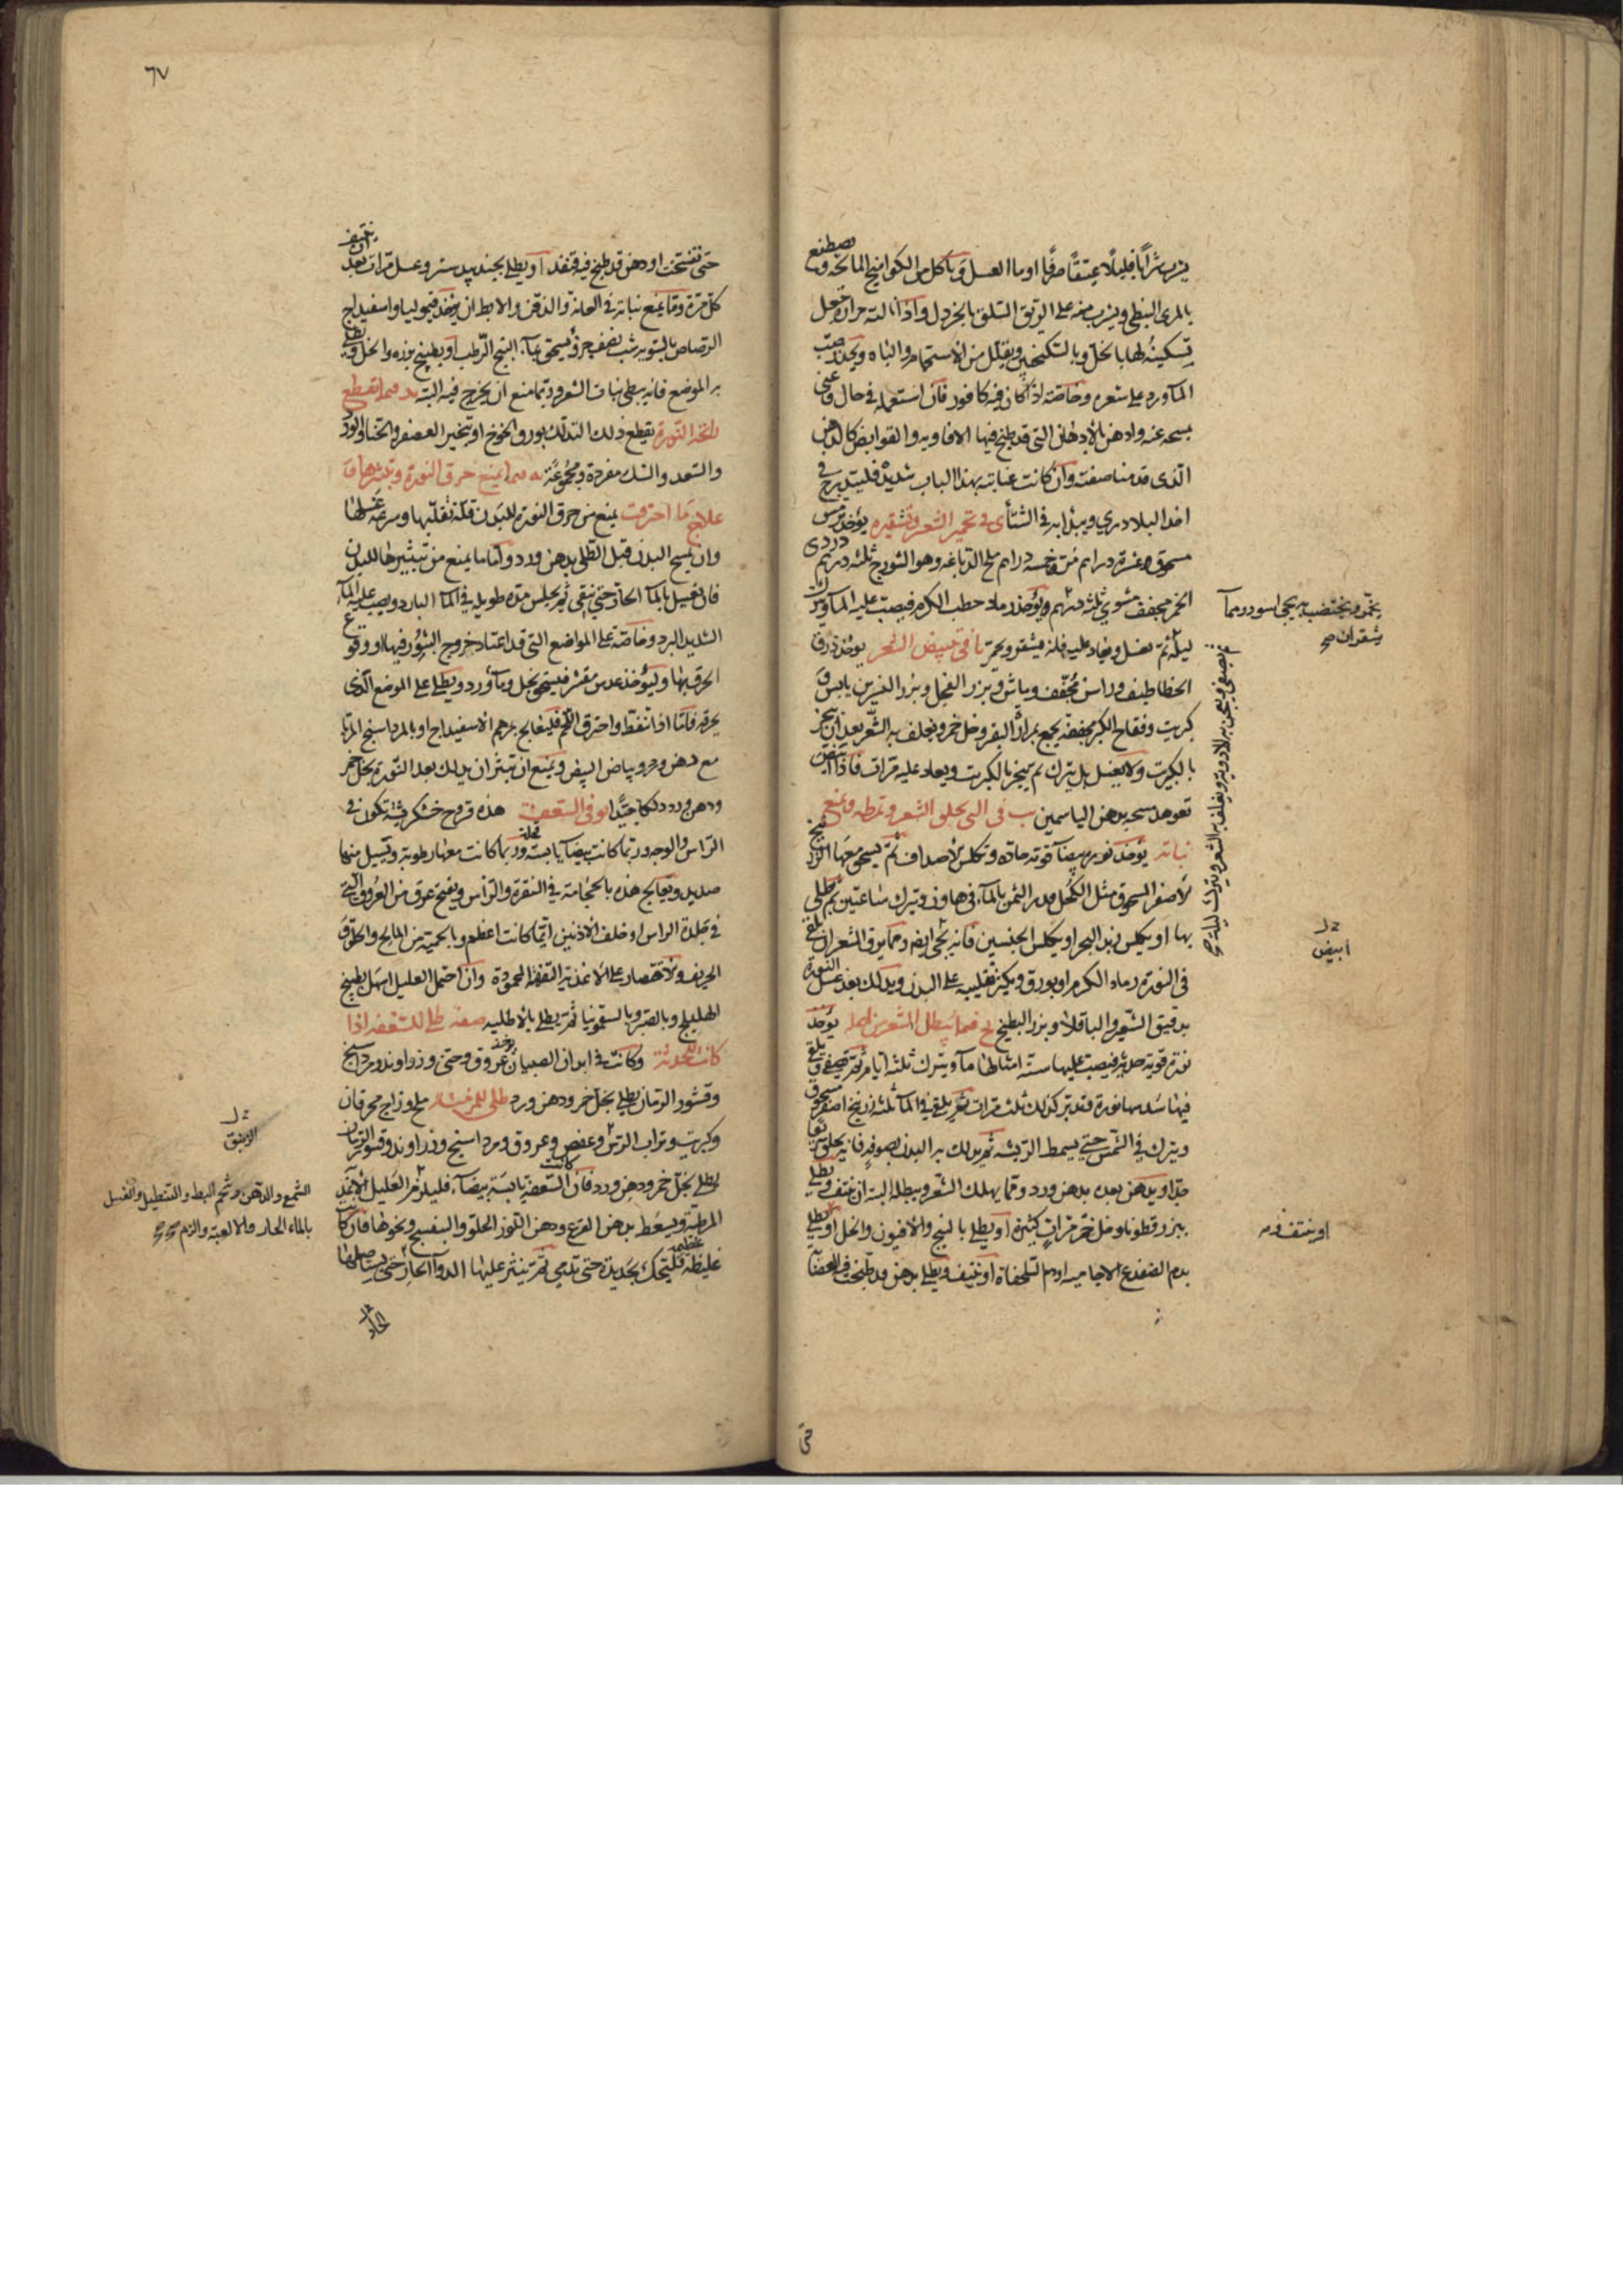 يشرب شرابا قليلا عتيقا صرفا او ماء العسل وياكل من الكواميخ المالحة ويصطبغ
بالمري النبطي ويشرب منه على الريق السلق بالخردل واذا نالته حرارة جعل
تسكينه لها بالخل وبالسكنجبين ويقلل من الاستحمام والباه ويحذر صب
الماورد على شعره وخاصة اذا كان فيه كافور فان استعمله في حال
مسحه عنه وادهن بالادهان التي قد طبخ فيها الافاويه والقوابض كالدهن
الذي قدمنا صفته وان كانت عنايته بهذا الباب شديدة فليتدرج في
اخذ البلادري ويبدا به في الشتاء في تحمير الشعر وتشقيره يوخذ ترمس
مسحوق عشرة دراهم مر خمسة دراهم ملح الدباغة وهو الشورج ثلثة دراهم دردى
الخمر مجفف مشوي ثلثة دراهم ويوخذ رماد حطب الكرم فيصب عليه الماء ويترك
ليلة ثم يغسل ويعاد عليه فانه يشقر ويحمر في تبييض الشعر يوخذ ذرق
الخطاطيف وراسن مجفف وماش وبزر الفجل وبزر النسرين يابس و
كبريت وفقاح الكبر مجففة يجمع بمرارة البقر وخل خمر ويغلف به الشعر بعد ان يبخر
بالكبريت ولا يغسل بل يترك ثم يبخر بالكبريت ويعاد عليه مرات فاذا ابيض
تعوهد مسحه بدهن الياسمين في التي تحلق الشعر وتمطه وتمنع
نباته يوخذ نورة بيضاء قوية حادة وكلس الاصداف ثم يسحق معها الزرنيخ
الاصفر المسحوق مثل الكحل قدر الثمن بالماء في هاون ويترك ساعتين ثم يطلى
بها او كلس زبد البحر او كلس الجنسين فانه يجيء ايضا ومما يرق الشعر ان يلقى
في النورة رماد الكرم او بورق ويكثر تقليبه على البدن ويدلك بعد غسل النورة
بدقيق الشعير والباقلا وبزر البطيخ فيما يبطل الشعر من اصله يوخذ
نورة قوية حديثة فيصب عليها ستة امثالها ماء ويترك ثلثة ايام ثم يصفى ويلقى
فيها سدسها نورة فتدبر كذلك ثلث مرات ثم يلقى في الماء ثلثة زرنيخ اصفر مسحوق
ويترك في الشمس حتى يسمط الريشة ثم يدلك به البدن بصوفة فانه يحلق سريعا
جدا ويدهن بعده بدهن ورد ومما يهلك الشعر ويبطله البتة ان ينتف ويطلى
ببزر قطونا وخل خمر مرات كثيرة او يطلى بالبنج والافيون والخل او يطلى
بدم الضفدع الاجامية او دم السلحفاة او ينتف ويطلى بدهن قد طبخت فيه العضاءة
يخمر ويختضب به يجي اسود ومما
يشقر ان صح
ويصفى ويعجن به الادوية ويغلف به الشعر ويترك ليلة صح
ابيض
او ينتف ودم
حتى
٦٧
حتى تفسخت او دهن قد طبخ فيه قنفذ او يطلى بجندبيدستر وعسل مرات بعد ان ينتف
كل مرة ومما يمنع نباته في العانة والذقن والابط ان يوخذ قيموليا واسفيداج
الرصاص بالسوية شب نصف جزو يسحق بماء البنج الرطب او بطبيخ بزره والخل ويطلى
به الموضع فانه يبطي نبات الشعر وربما منع ان يخرج فيه البتة فيما يقطع
رائحة النورة يقطع ذلك التدلك بورق الخوخ او بتجير العصفر والحنا والورد
والسعد والسك مفردة ومجموعة فيما يمنع حرق النورة وتبثيرها و
علاج ما احترقت يمنع من حرق النورة للبدن قلة تقليبها وسرعة غسلها
وان يمسح البدن قبل الطلي بدهن ورد واما ما يمنع من تبثيرها للبدن
فان يغسل بالماء الحار حتى ينقى ثم يجلس مدة طويلة في الماء البارد ويصب عليه الماء
الشديد البرد وخاصة على المواضع التي قد اعتاد خروج البثور فيها او وقوع
الحرق بها وليوخذ عدس مقشر فيسحق بخل وماورد ويطلى على الموضع الذي
يحرقه فاما اذا تنفط واحترق اللحم فليعالج بمرهم الاسفيداج او بالمرداسنج المربا
مع دهن ورد وبياض البيض ويمنع ان تبثر ان يدلك بعد النورة بخل خمر
ودهن ورد دلكا جيدا في السعفة هذه قروح خشكريشة تكون في
الراس والوجه وربما كانت بيضاء يابسة قحلة وربما كانت معها رطوبة وتسيل منها
صديد ويعالج هذه بالحجامة في النقرة والراس ويفتح عرق من العروق التي
في جلدة الراس او خلف الاذنين ايتها كانت اعظم وبالحمية من المالح والحلو و
الحريف والاقتصار على الاغذية التفهة المحمودة وان احتمل العليل اسهل بطبيخ
الهليلج وبالصبر وبالسقمونيا ثم يطلى بالاطلية صفة طلي للسعفة اذا
كانت حديثة وكانت في ابدان الصبيان يوخذ عروق وحنى وزراوند ومرداسنج
وقشور الرمان يطلى بخل خمر ودهن ورد طلي للمزمنة ملح وزاج محرقان
وكبريت وتراب الزيبق وعفص وعروق ومرداسنج وزراوند وقشور الرمان
يطلى بخل خمر ودهن ورد فان كانت السعفة يابسة بيضاء فليلزم العليل الاغذية
المرطبة ويسعط بدهن القرع ودهن اللوز الحلو والبنفسج ونحوها فان كانت
غليظة عظيمة فليحك بحديدة حتى تدمي ثم ينثر عليها الدواء الحار حتى يستاصلها
الزيبق
الشمع والدهن وشحم البط والتنطيل والغسل
بالماء الحار والالعبة والزم صح
الحاد